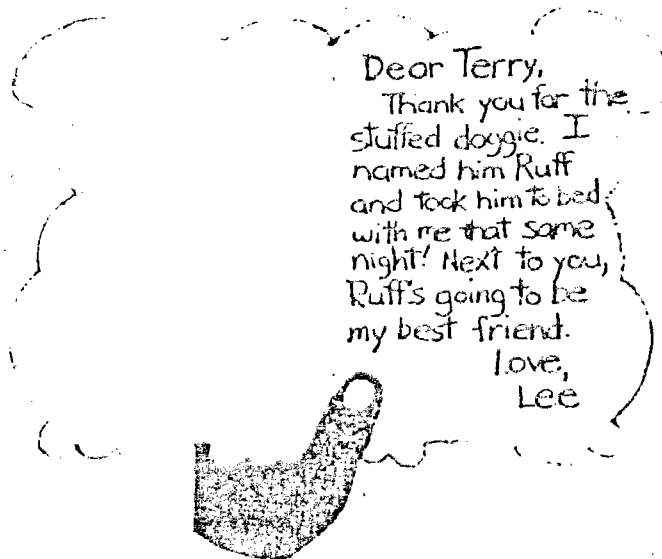 Dear Terry,
Thank you for the
stuffed doggie. I
named him Ruff
and took him to bed
with me that same
night! Next to you,
Ruff's going to be
my best friend.
Love,
Lee